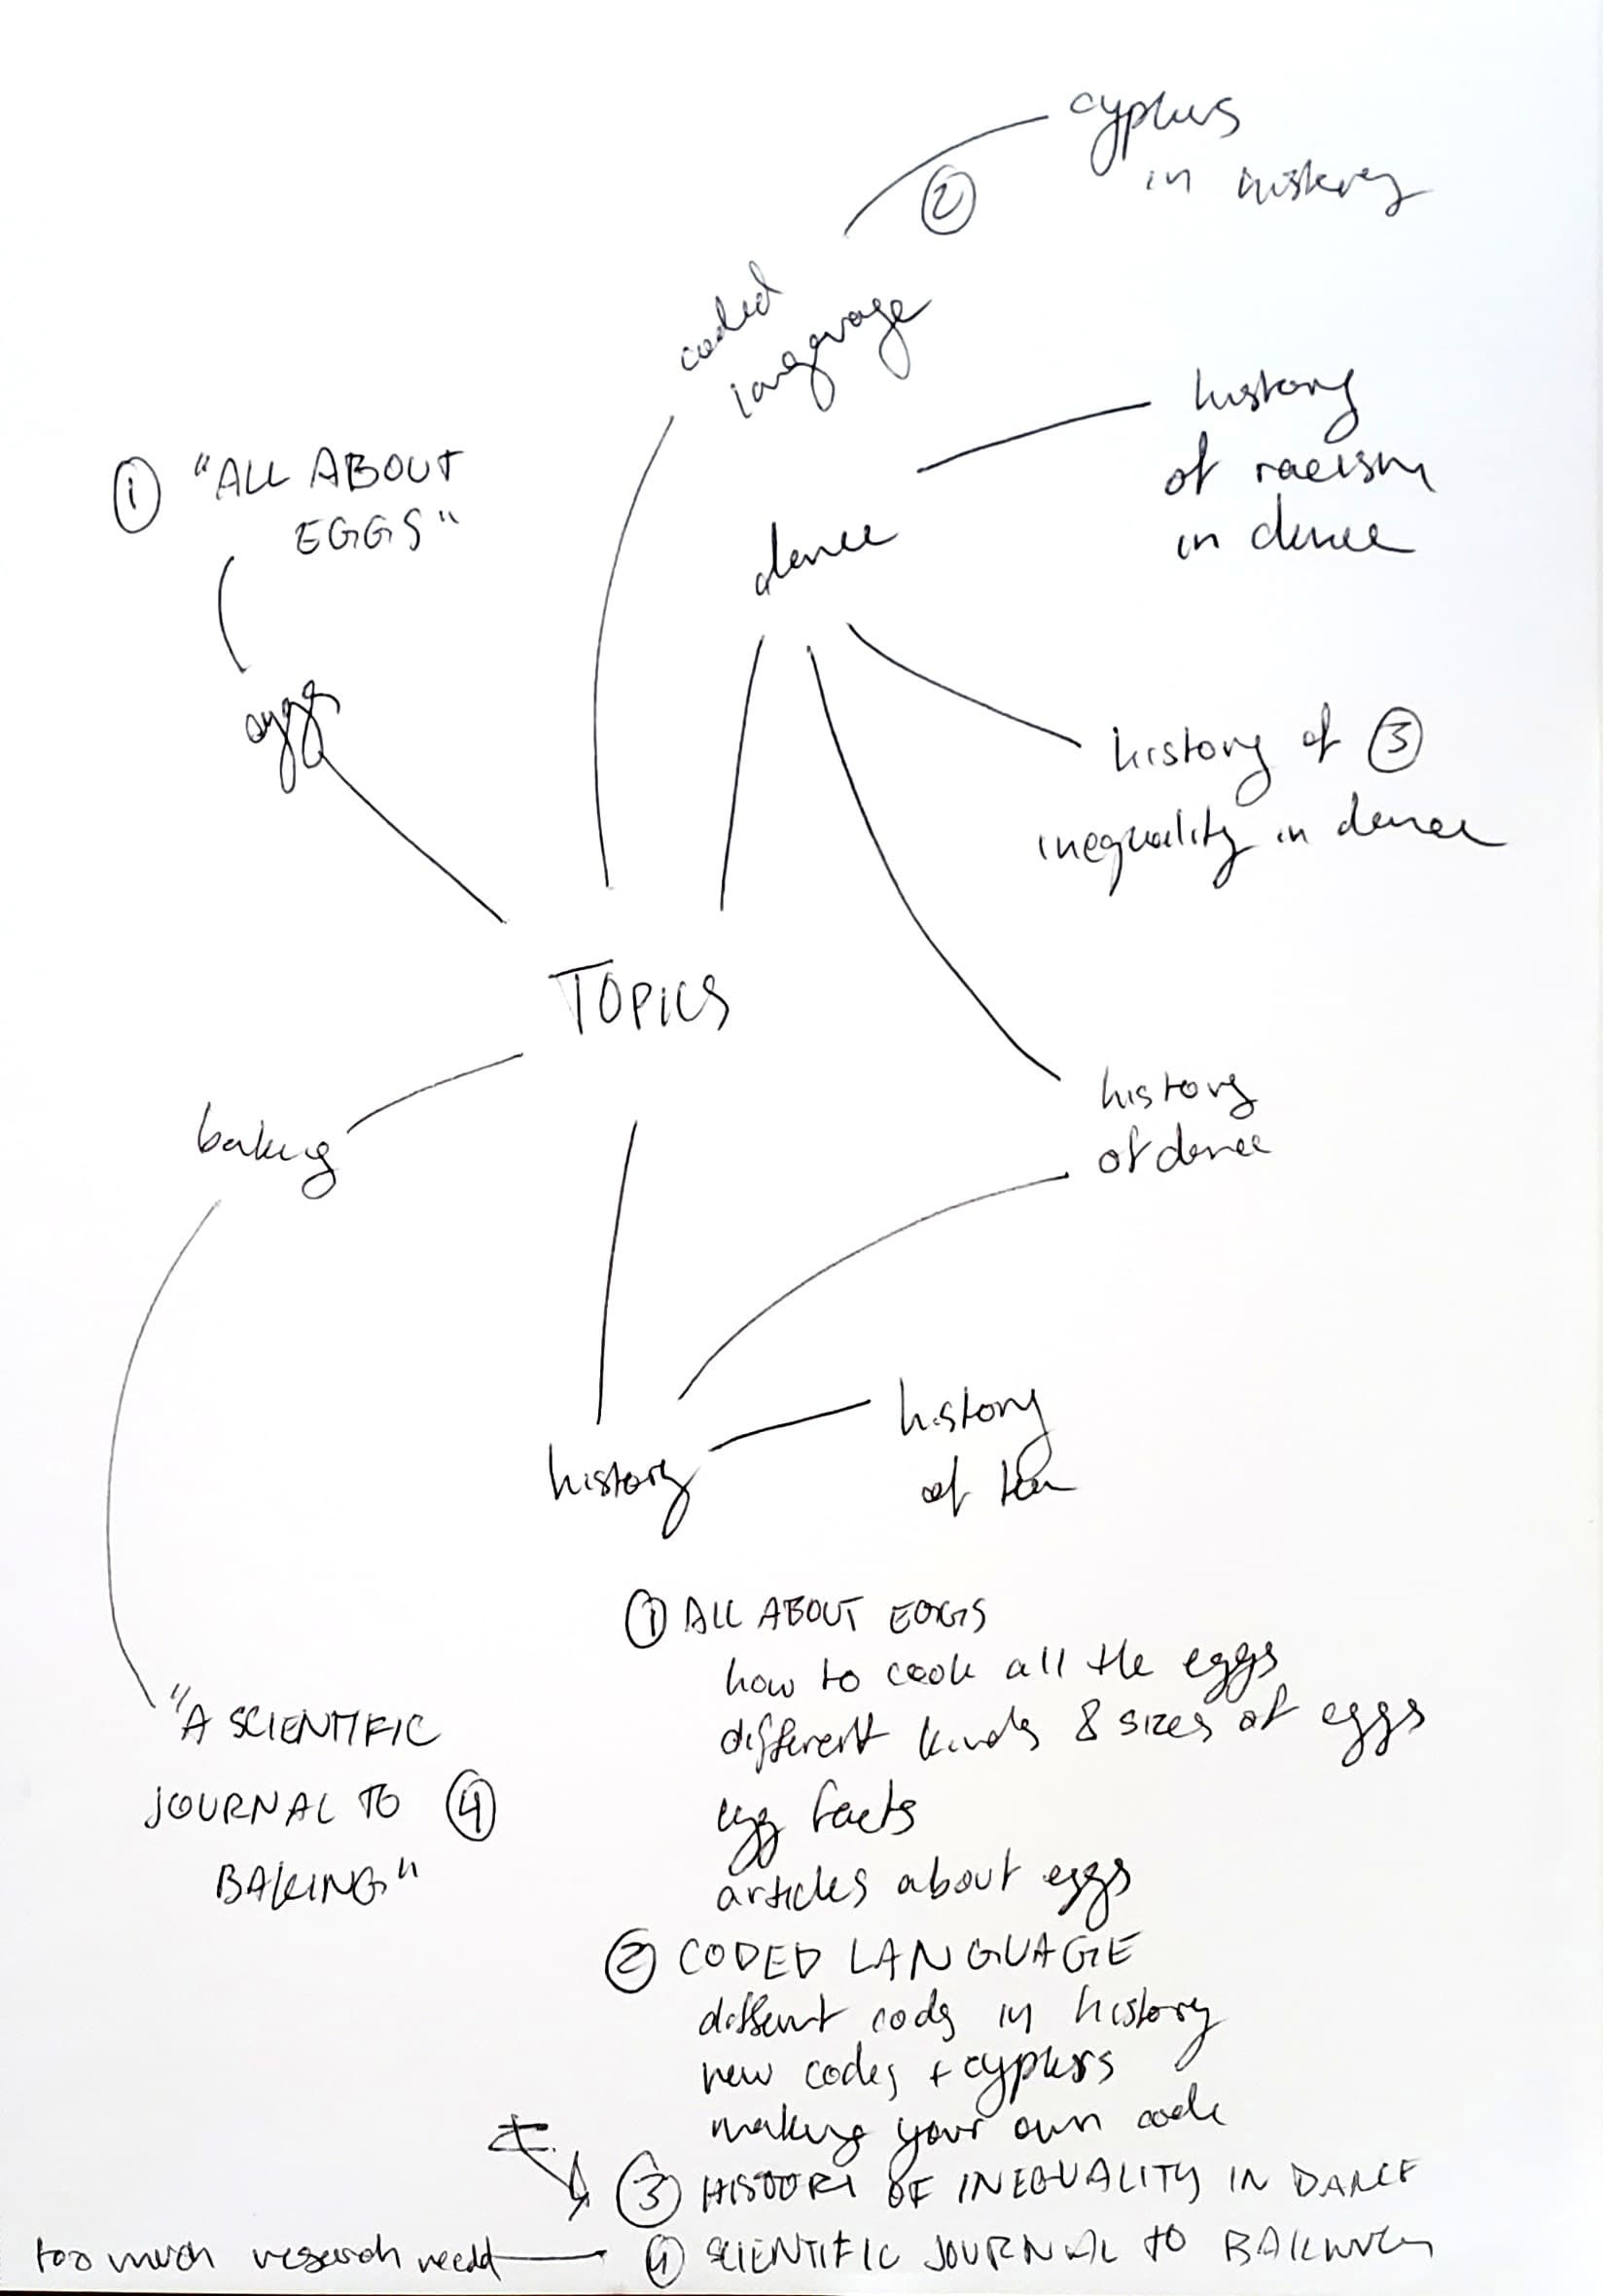 cyphers
in history
②
coded
language
history
of racism
in dance
① "ALL ABOUT
EGGS"
dance
eggs
history of ③
inequality in dance
TOPICS
history
of dance
baking
history
of tea
history
① ALL ABOUT EGGS
how to cook all the eggs
different kinds & sizes of eggs
egg facts
articles about eggs
"A SCIENTIFIC
JOURNAL TO ④
BAKING"
② CODED LANGUAGE
different codes in history
new codes + cyphers
making your own code
③ HISTORY OF INEQUALITY IN DANCE
too much research needed
④ SCIENTIFIC JOURNAL TO BAKING